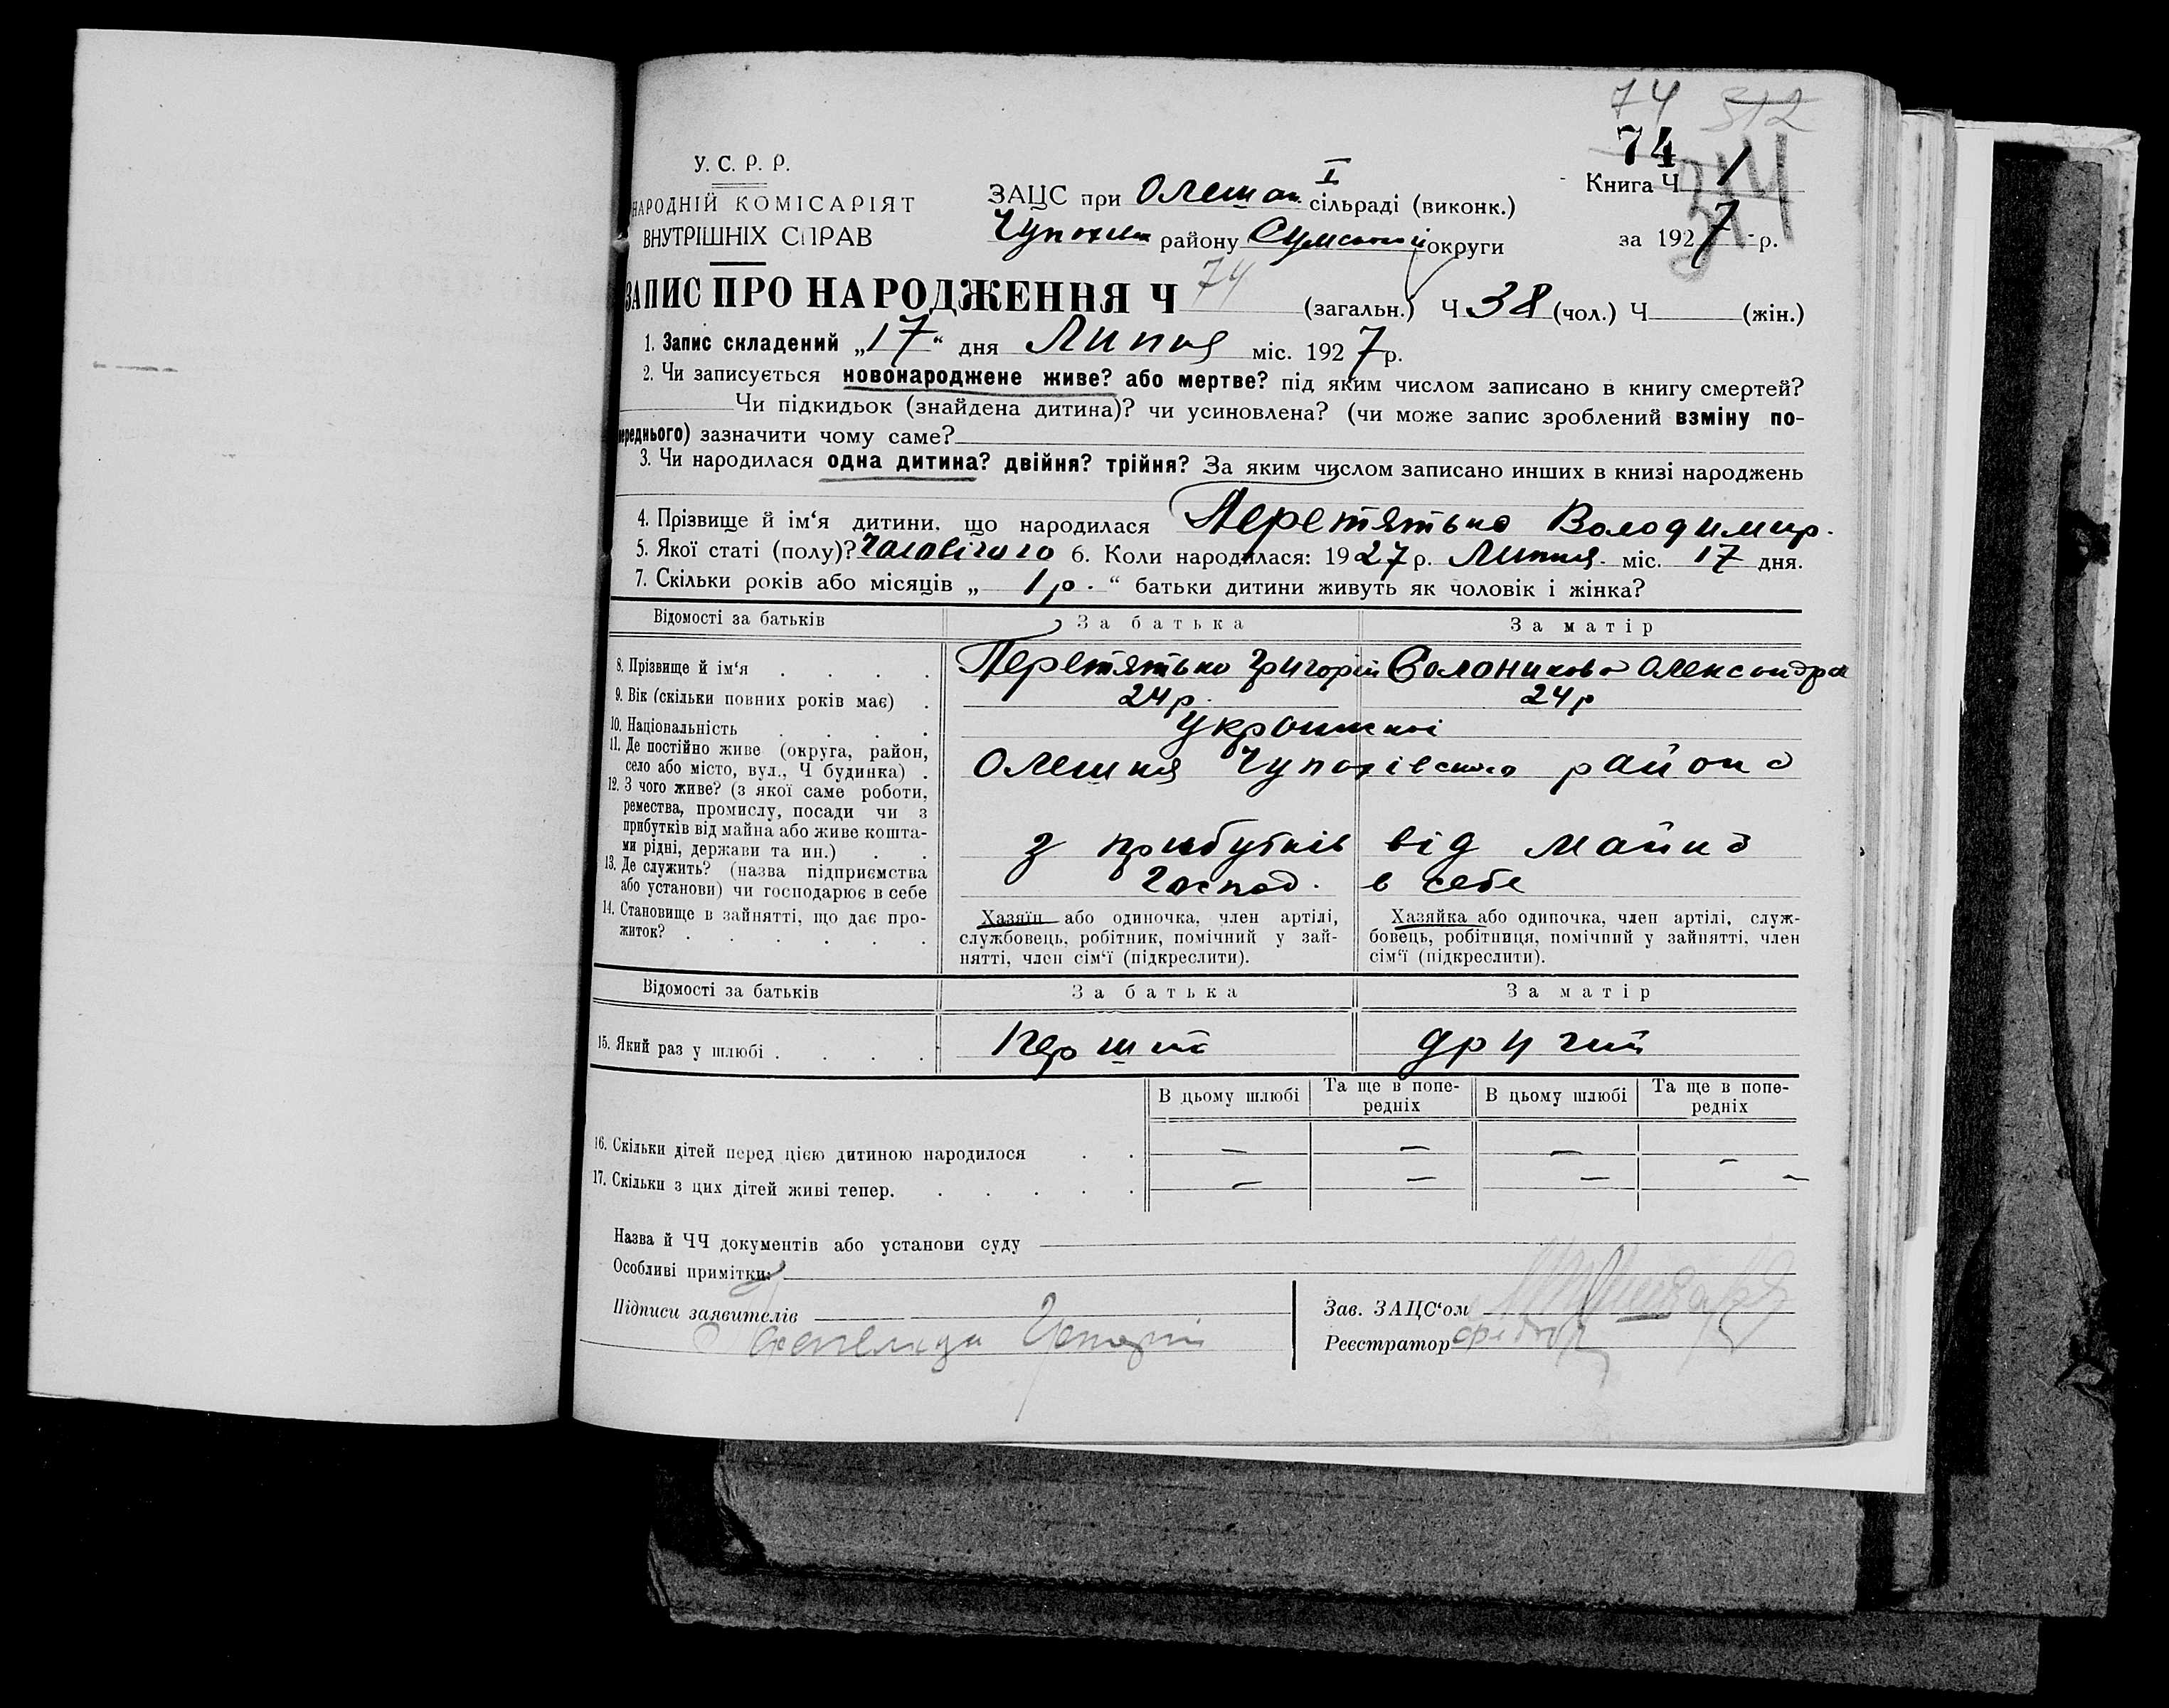 74 312
74
У. С. Р. Р.
НАРОДНІЙ КОМІСАРІЯТ
ВНУТРІШНІХ СПРАВ
ЗАЦС при Олешан. I сільраді (виконк.)
Чупахів району Сумської округи
Книга Ч 1
за 1927 р.
ЗАПИС ПРО НАРОДЖЕННЯ Ч 74 (загальн.) Ч 38 (чол.) Ч (жін.)
1. Запис складений „17“ дня Липня міс. 1927 р.
2. Чи записується новонароджене живе? або мертве? під яким числом записано в книгу смертей?
Чи підкидьок (знайдена дитина)? чи усиновлена? (чи може запис зроблений взміну по-
переднього) зазначити чому саме?
3. Чи народилася одна дитина? двійня? трійня? За яким числом записано инших в книзі народжень
4. Прізвище й ім‘я дитини, що народилася Перетятько Володимир.
5. Якої статі (полу)? Чоловічого 6. Коли народилася: 1927 р. Липня міс. 17 дня.
7. Скільки років або місяців „ 1 р. “ батьки дитини живуть як чоловік і жінка?
Відомості за батьків За батька За матір
8. Прізвище й ім‘я Перетятько Григорій Солоникова Олександра
9. Вік (скільки повних років має) 24 р. 24 р
10. Національність Українці
11. Де постійно живе (округа, район,
село або місто, вул., Ч будинка) Олешня Чупахівського району
12. З чого живе? (з якої саме роботи,
ремества, промислу, посади чи з
прибутків від майна або живе кошта-
ми рідні, держави та ин.) з прибутків від майна
13. Де служить? (назва підприємства
або установи) чи господарює в себе Господ. в себе
14. Становище в зайнятті, що дає про-
житок?
Хазяїн або одиночка, член артілі,
службовець, робітник, помічний у зай-
нятті, член сім‘ї (підкреслити).
Хазяйка або одиночка, член артілі, служ-
бовець, робітниця, помічний у зайнятті, член
сім‘ї (підкреслити).
Відомості за батьків За батька За матір
15. Який раз у шлюбі Перший другий
В цьому шлюбі Та ще в попе-
редніх В цьому шлюбі Та ще в попе-
редніх
16. Скільки дітей перед цією дитиною народилося — — — —
17. Скільки з цих дітей живі тепер. — — — —
Назва й ЧЧ документів або установи суду
Особливі примітки:
Підписи заявителів
Зав. ЗАЦС‘ом
Реєстратор